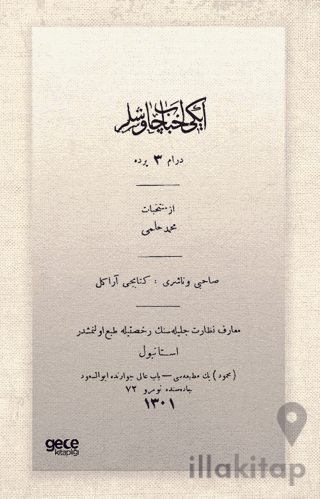 ایكی احباب چاوشلر
درام ۳ پرده
از منتخبات
محمد حلمی
صاحبی و ناشری : كتابجی آراكل
معارف نظارت جلیله سنك رخصتیله طبع اولنمشدر
استانبول
(محمود) بك مطبعه سی — باب عالی جوارنده ابوالسعود
جاده سنده نومرو ۷۲
۱۳۰۱
gece
kitaplığı
illakitap